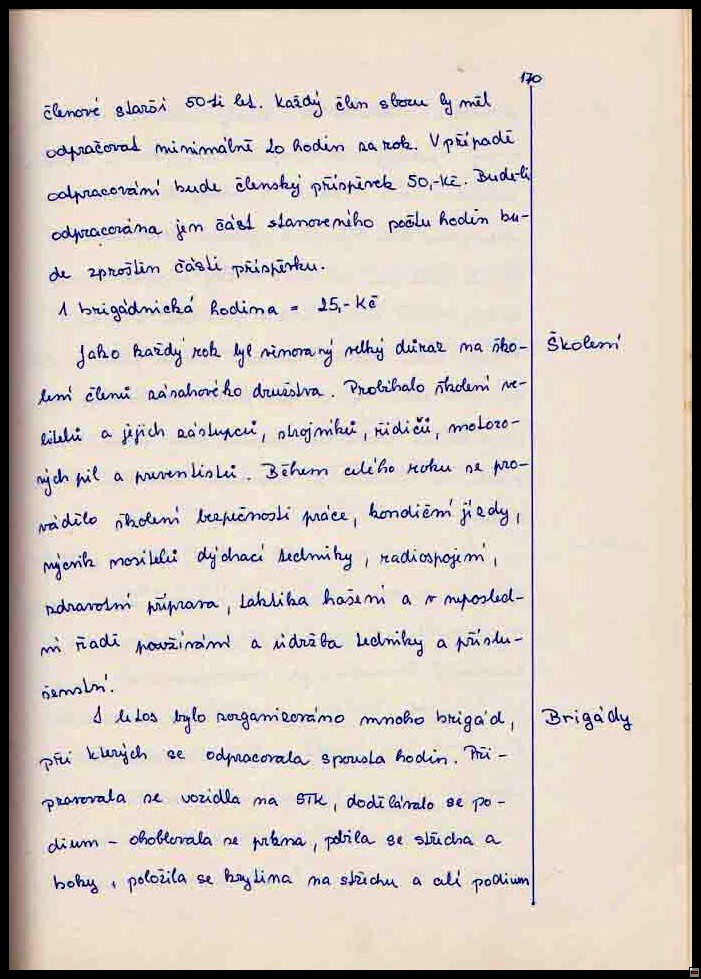 170
členové starší 50-ti let. Každý člen sboru by měl
odpracovat minimálně 20 hodin za rok. V případě
odpracování bude členský příspěvek 50,-Kč. Bude-li
odpracována jen část stanoveného počtu hodin bu-
de zproštěn části příspěvku.
1 brigádnická hodina = 25,- Kč
Jako každý rok byl věnovaný velký důraz na ško-
Školení
lení členů zásahového družstva. Probíhalo školení ve-
litelů a jejich zástupců, strojníků, řidičů, motoro-
vých pil a preventistů. Během celého roku se pro-
vádělo školení bezpečnosti práce, kondiční jízdy,
výcvik nositelů dýchací techniky, radiospojení,
zdravotní příprava, taktika hašení a v neposled-
ní řadě používání a údržba techniky a příslu-
šenství.
I letos bylo zorganizováno mnoho brigád,
Brigády
při kterých se odpracovala spousta hodin. Při-
pravovala se vozidla na STK, dodělávalo se po-
dium - ohoblovala se prkna, pobila se střecha a
boky, položila se krytina na střechu a celé podium